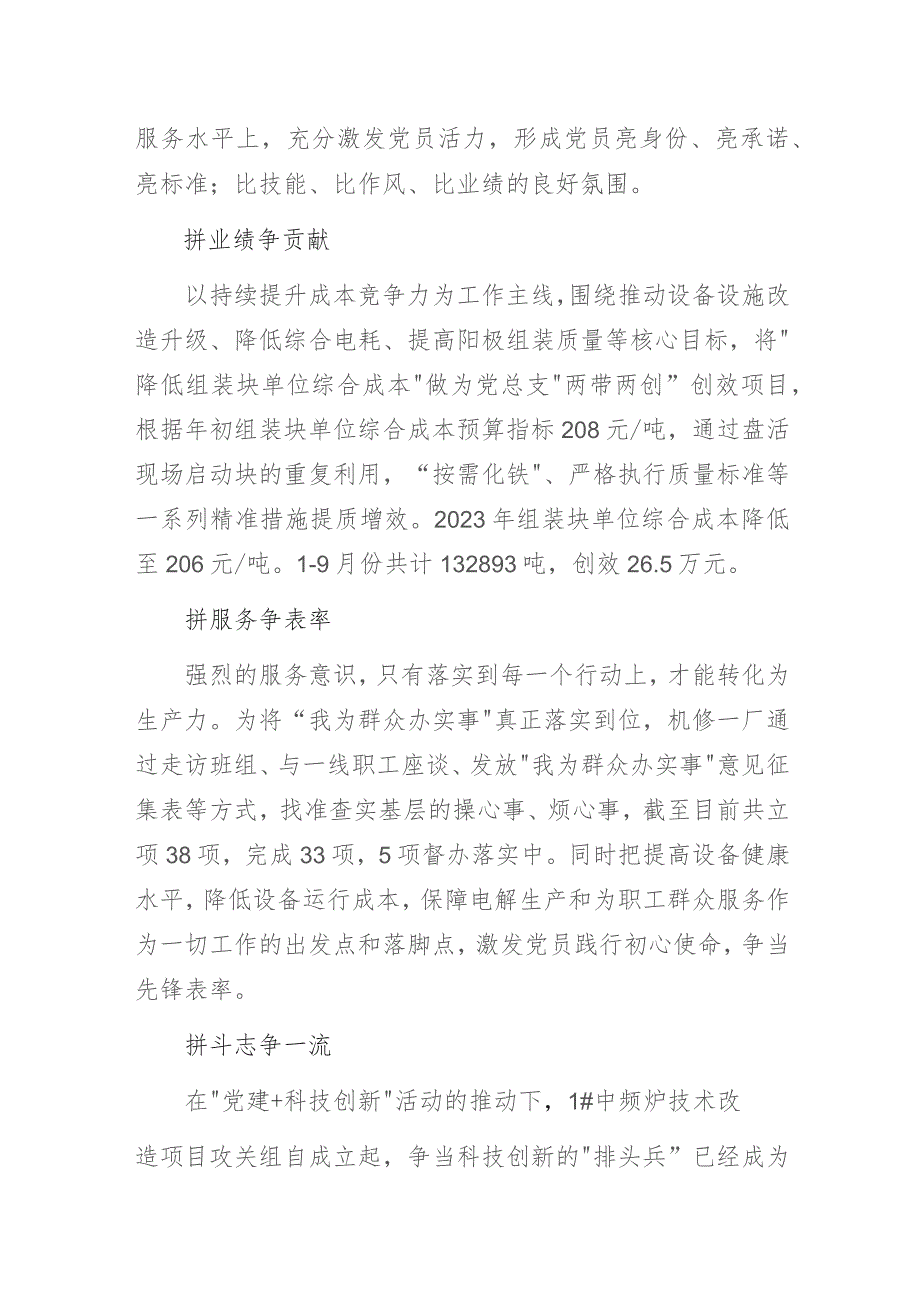 服务水平上，充分激发党员活力，形成党员亮身份、亮承诺、
亮标准；比技能、比作风、比业绩的良好氛围。
拼业绩争贡献
以持续提升成本竞争力为工作主线，围绕推动设备设施改
造升级、降低综合电耗、提高阳极组装质量等核心目标，将"
降低组装块单位综合成本"做为党总支"两带两创”创效项目，
根据年初组装块单位综合成本预算指标 208 元/吨，通过盘活
现场启动块的重复利用，“按需化铁"、严格执行质量标准等
一系列精准措施提质增效。2023 年组装块单位综合成本降低
至 206 元/吨。1-9 月份共计 132893 吨，创效 26.5 万元。
拼服务争表率
强烈的服务意识，只有落实到每一个行动上，才能转化为
生产力。为将“我为群众办实事"真正落实到位，机修一厂通
过走访班组、与一线职工座谈、发放"我为群众办实事"意见征
集表等方式，找准查实基层的操心事、烦心事，截至目前共立
项 38 项，完成 33 项，5 项督办落实中。同时把提高设备健康
水平，降低设备运行成本，保障电解生产和为职工群众服务作
为一切工作的出发点和落脚点，激发党员践行初心使命，争当
先锋表率。
拼斗志争一流
在"党建+科技创新"活动的推动下，1#中频炉技术改
造项目攻关组自成立起，争当科技创新的"排头兵”已经成为